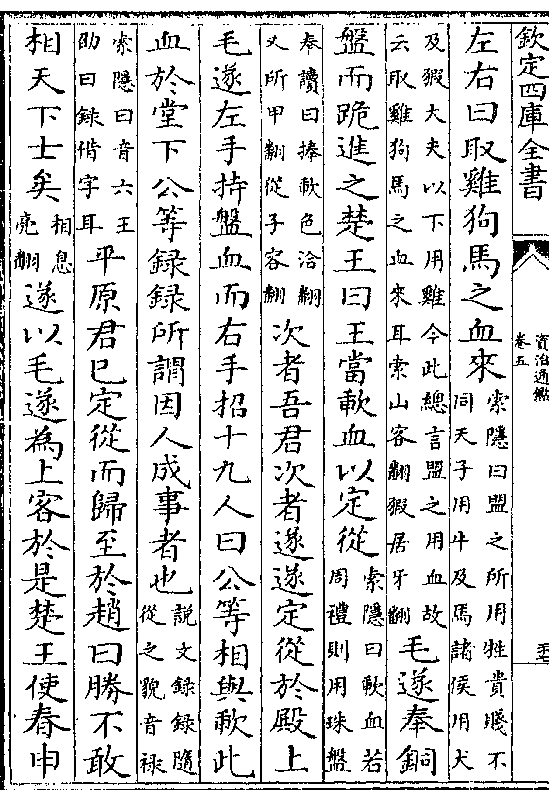 欽定四庫全書
資治通鑑
卷五
左右曰取雞狗馬之血來索隱曰盟之所用牲貴賤不同天子用牛及馬諸侯用犬
及豭大夫以下用雞今此總言盟之用血故云取雞狗馬之血來耳索山客翻豭居牙翻毛遂奉銅
盤而跪進之楚王曰王當歃血以定從索隱曰歃血若周禮則用珠盤
奉讀曰捧歃色洽翻又所甲翻從子容翻次者吾君次者遂遂定從於殿上
毛遂左手持盤血而右手招十九人曰公等相與歃此
血於堂下公等録録所謂因人成事者也説文録録隨從之貌音禄
索隱曰音六王劭曰録借字耳平原君已定從而歸至於趙曰勝不敢
相天下士矣相息亮翻遂以毛遂為上客於是楚王使春申